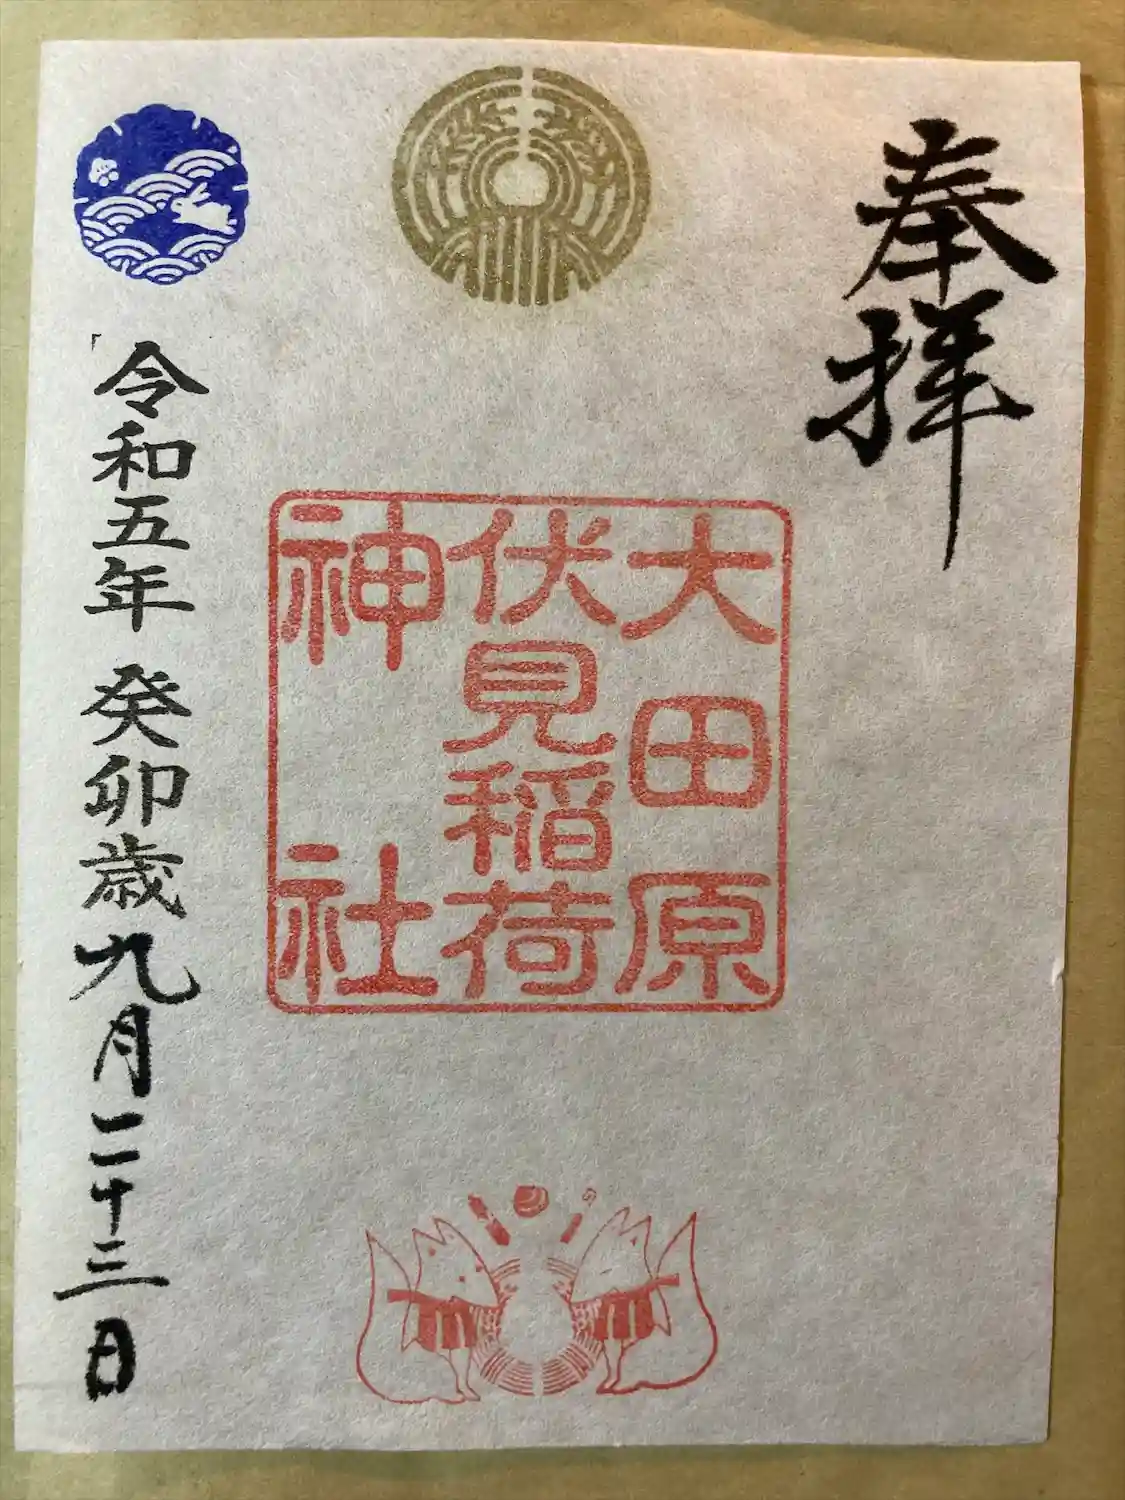 奉拝
大田原
伏見稲荷
神社
令和五年 癸卯歳 九月二十三日